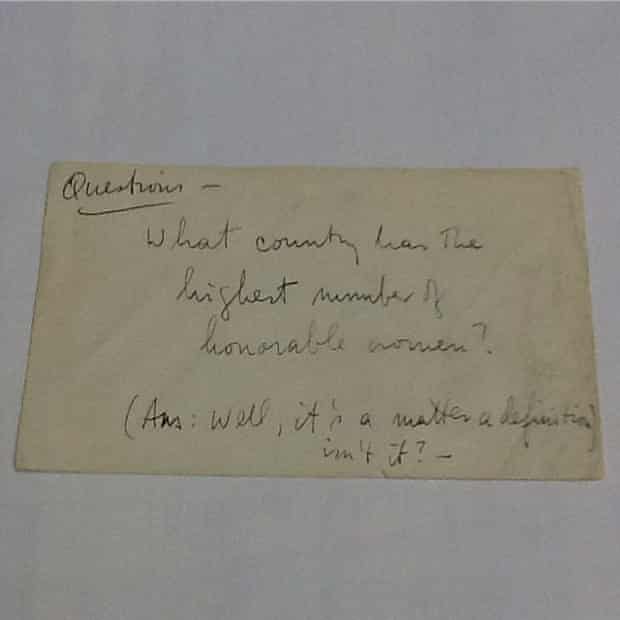 Questions —
What country has the
highest number of
honorable women?
(Ans: Well, it's a matter a definition)
isn't it? —